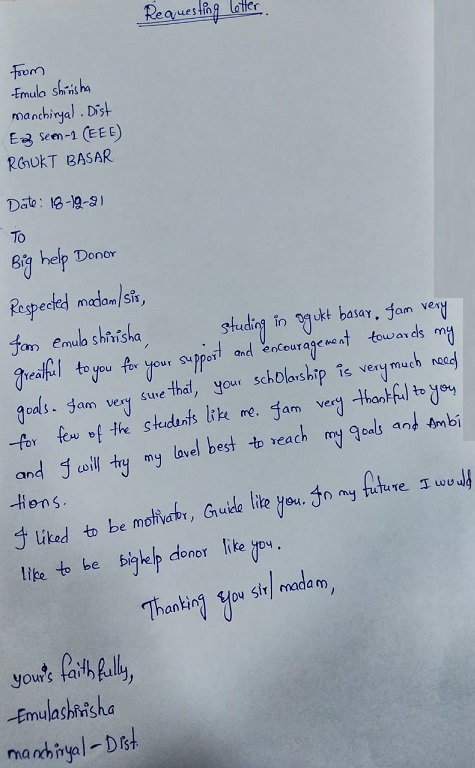 Requesting letter.
From
Emula shirisha
manchiryal. Dist
E3 sem-1 (EEE)
RGUKT BASAR
Date: 18-12-21
To
Big help Donor
Respected madam/sir,
Iam emula shirisha, studing in rgukt basar. Iam very
greatful to you for your support and encouragement towards my
goals. Iam very sure that, your schOlarship is very much need
for few of the students like me. Iam very thankful to you
and I will try my level best to reach my goals and Ambi
tions.
I liked to be motivator, Guide like you. In my future I would
like to be bighelp donor like you.
Thanking you sir/madam,
your's faithfully,
Emulashirisha
manchiryal - Dist.